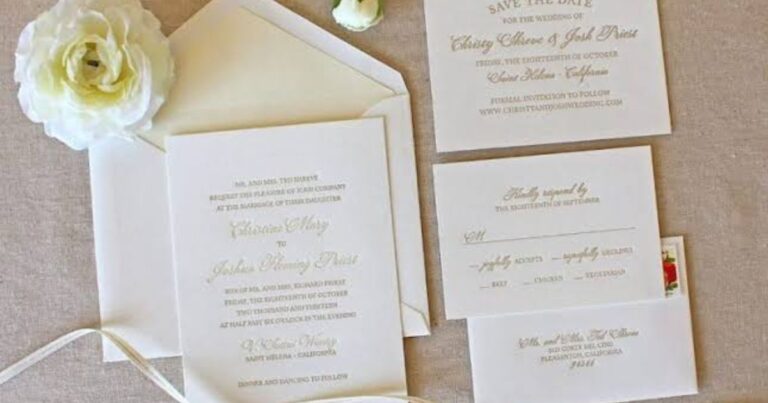 SAVE THE DATE
FOR THE WEDDING OF
Christy Shreve & Josh Priest
FRIDAY, THE EIGHTEENTH OF OCTOBER
Saint Helena - California
FORMAL INVITATION TO FOLLOW
WWW.CHRISTYANDJOSHWEDDING.COM
MR. AND MRS. TED SHREVE
REQUEST THE PLEASURE OF YOUR COMPANY
AT THE MARRIAGE OF THEIR DAUGHTER
Christine Mary
TO
Joshua Fleming Priest
SON OF MR. AND MRS. RICHARD PRIEST
FRIDAY, THE EIGHTEENTH OF OCTOBER
TWO THOUSAND AND THIRTEEN
AT HALF PAST SIX O'CLOCK IN THE EVENING
V. Sattui Winery
SAINT HELENA - CALIFORNIA
DINNER AND DANCING TO FOLLOW
Kindly respond by
THE EIGHTEENTH OF SEPTEMBER
M
joyfully ACCEPTS regretfully DECLINES
BEEF CHICKEN VEGETARIAN
Mr. and Mrs. Ted Shreve
PLEASANTON, CALIFORNIA
94566